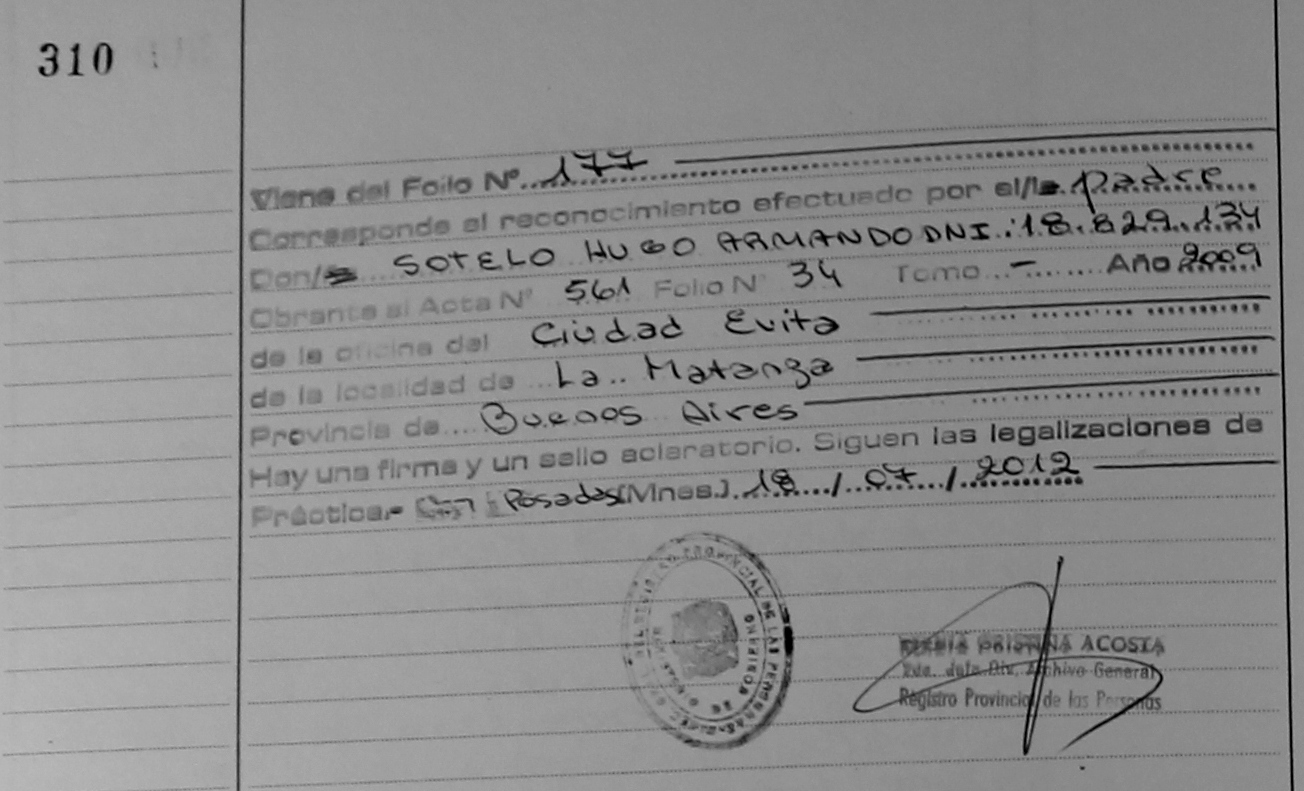 310
Viene del Folio Nº 177
Corresponde al reconocimiento efectuado por el/la padre
Don/ SOTELO HUGO ARMANDO DNI: 18.829.134
Obrante al Acta Nº 561 Folio Nº 34 Tomo - Año 2009
de la oficina del Ciudad Evita
de la localidad de La Matanza
Provincia de Buenos Aires
Hay una firma y un sello aclaratorio. Siguen las legalizaciones de
Práctica.- Posadas(Mnes.) 18/07/2012
PROVINCIAL DE LAS PERSONAS
GOBIERNO
ACOSTA
Archivo General
Registro Provincial de las Personas